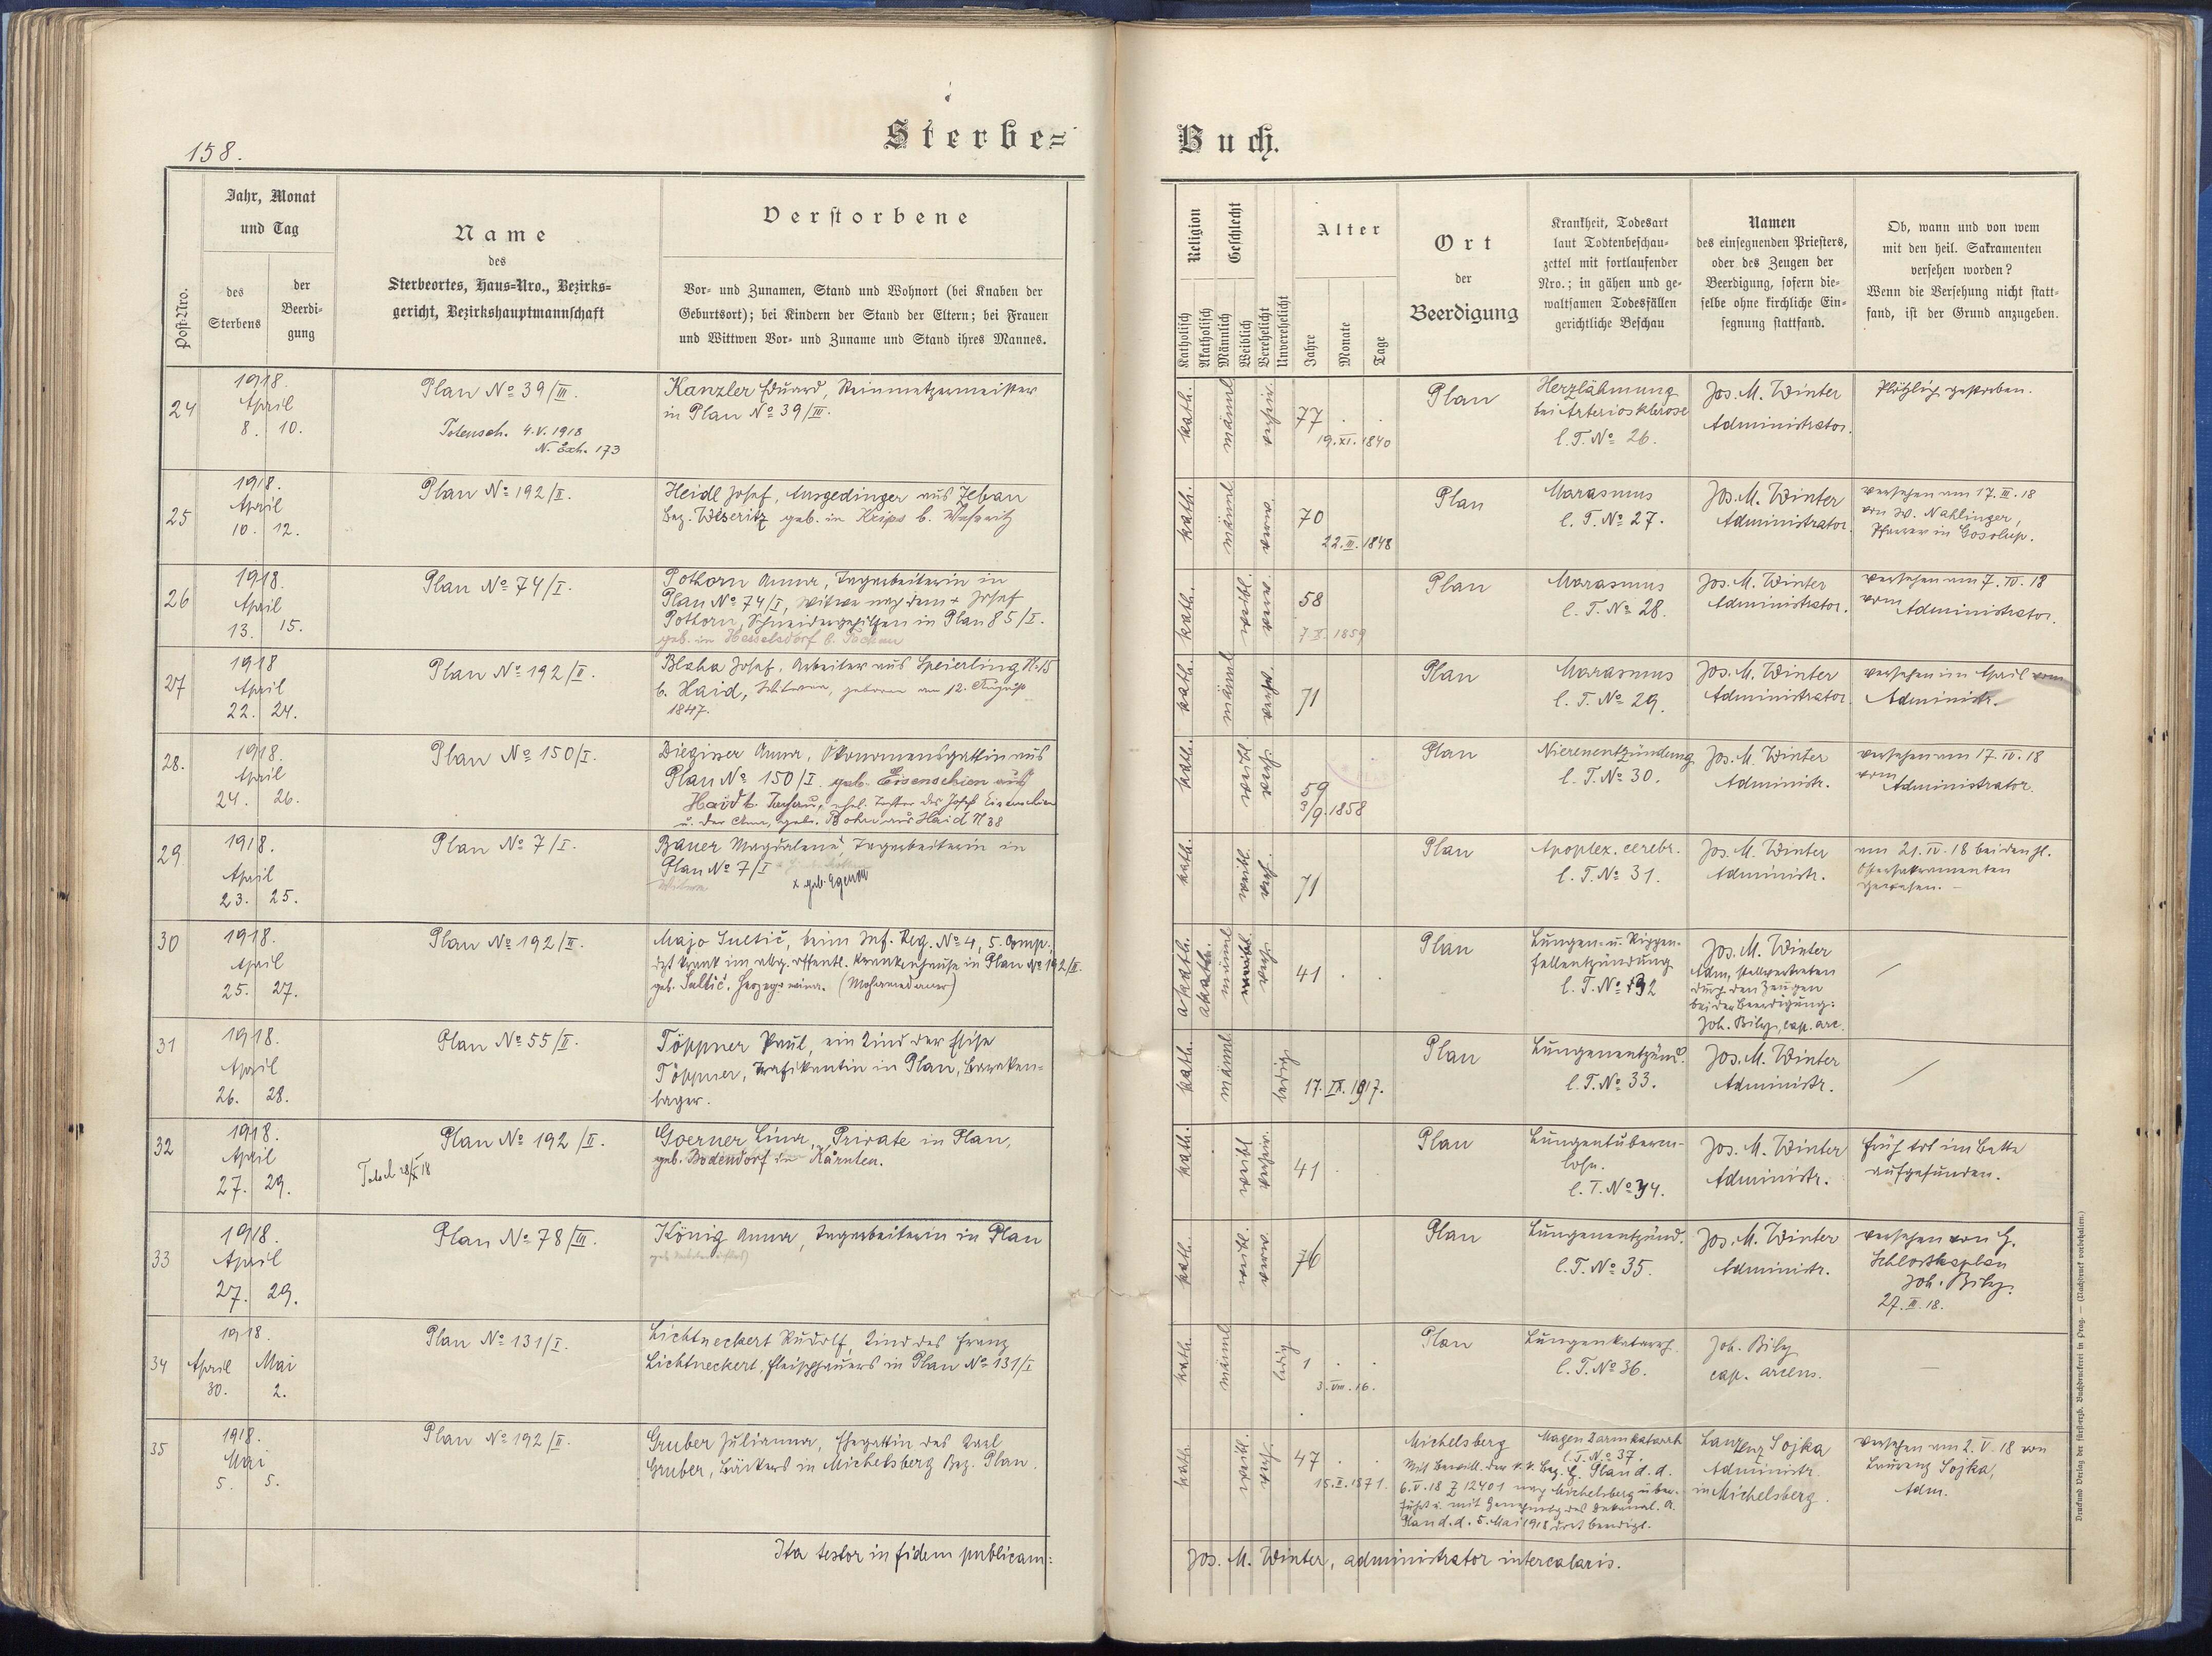 158.
Sterbe=
Buch.
Post-Nro.
Jahr, Monat
und Tag
des
Sterbens
der
Beerdi-
gung
Name
des
Sterbeortes, Haus-Nro., Bezirks-
gericht, Bezirkshauptmannschaft
Verstorbene
Vor- und Zunamen, Stand und Wohnort (bei Knaben der
Geburtsort); bei Kindern der Stand der Eltern; bei Frauen
und Wittwen Vor- und Zuname und Stand ihres Mannes.
Religion
Katholisch
Akatholisch
Geschlecht
Männlich
Weiblich
Verehelicht
Unverehelicht
Alter
Jahre
Monate
Tage
Ort
der
Beerdigung
Krankheit, Todesart
laut Todtenbeschau-
zettel mit fortlaufender
Nro.; in gähen und ge-
waltsamen Todesfällen
gerichtliche Beschau
Namen
des einsegnenden Priesters,
oder des Zeugen der
Beerdigung, sofern die-
selbe ohne kirchliche Ein-
segnung stattfand.
Ob, wann und von wem
mit den heil. Sakramenten
versehen worden?
Wenn die Versehung nicht statt-
fand, ist der Grund anzugeben.
24
1918.
April
8. 10.
Plan No 39/III.
Totensch. 4.V.1918
N. Exh. 173
Kanzler Eduard, Steinmetzermeister
in Plan No 39/III.
kath. männl. verehel.
77
19.XI.1840
Plan
Herzlähmung
bei Arteriosklerose
l. T. No 26.
Jos. M. Winter
Administrator.
Plötzlich gestorben.
25
1918.
April
10. 12.
Plan No 192/II.
Heidl Josef, Ausgedinger aus Zeban
Bez. Weseritz geb. in Krips b. Weseritz
kath. männl. verw.
70
22.III.1848
Plan
Marasmus
l. T. No 27.
Jos. M. Winter
Administrator.
versehen am 17.III.18
von W. Nahlinger,
Pfarrer in Gosolup.
26
1918.
April
13. 15.
Plan No 74/I.
Pothorn Anna, Tagarbeiterin in
Plan No 74/I, Witwe nach dem + Josef
Pothorn, Schneidergehilfen in Plan 85/I.
geb. in Hesselsdorf b. Tachau
kath. weibl. verw.
58
1859
Plan
Marasmus
l. T. No 28.
Jos. M. Winter
Administrator.
versehen am 7.IV.18
vom Administrator.
27
1918
April
22. 24.
Plan No 192/II.
Blaha Josef, Arbeiter aus Speierling N. 15
b. Haid, Witwer, geboren am 12. August
1847.
kath. männl. verehel.
71
Plan
Marasmus
l. T. No 29.
Jos. M. Winter
Administrator
versehen im April vom
Administr.
28.
1918.
April
24. 26.
Plan No 150/I.
Dieginer Anna, Ökonomensgattin aus
Plan No 150/I. geb. Eisenschien aus
Haid b. Tachau, ehel. Tochter des Josef Eisenschien
u. der Anna, geb. aus Haid N 38
kath. weibl. verehel.
59
3/9.1858
Plan
Nierenentzündung
l. T. No 30.
Jos. M. Winter
Administr.
versehen am 17.IV.18
vom Administrator.
29.
1918.
April
23. 25.
Plan No 7/I.
Bauer Magdalena, Tagarbeiterin in
Plan No 7/I
Witwe
x geb.
kath. weibl. verehel.
71
Plan
Apoplex. cerebr.
l. T. No 31.
Jos. M. Winter
Administr.
am 21.IV.18 bei den hl.
Ostersakramenten
gewesen. —
30
1918.
April
25. 27.
Plan No 192/II.
Majo Suetič, beim Inf. Reg. No 4, 5. Comp.,
dzt krank im allg. öffentl. Krankenhause in Plan No 192/II.
geb. Herzegowina. (Mohamedaner)
akath. akath. männl. verehel.
41
Plan
Lungen- u. Rippen-
fellentzündung
l. T. No 32
Jos. M. Winter
Adm, stellvertreten
durch den Zeugen
bei der Beerdigung:
Joh. Bily, cap. arc.
31
1918.
April
26. 28.
Plan No 55/II.
Töppner Paul, ein Kind der Elise
Töppner, Trafikantin in Plan, Baraken-
lager.
kath. männl. ledig
17.IX.1917.
Plan
Lungenentzünd.
l. T. No 33.
Jos. M. Winter
Administr.
32
1918.
April
27. 29.
Plan No 192/II.
Goerner Lina, Private in Plan,
geb. Bodendorf in Kärnten.
kath. weibl. verehel.
41
Plan
Lungentuberku-
lose.
l. T. No 34.
Jos. M. Winter
Administr.
früh tot im Bette
aufgefunden.
33
1918.
April
27. 29.
Plan No 78/III.
König Anna, Tagarbeiterin in Plan
kath. weibl. verw.
76
Plan
Lungenentzünd.
l. T. No 35.
Jos. M. Winter
Administr.
versehen von H.
Schlosskaplan
Joh. Bily.
27.III.18.
34
1918.
April Mai
30. 2.
Plan No 131/I.
Lichtneckert Rudolf, Kind des Franz
Lichtneckert, Fleischhauers in Plan No 131/I
kath. männl. ledig
1
3.VIII.16.
Plan
Lungenkatarrh
l. T. No 36.
Joh. Bily
cap. arcens.
—
35
1918.
Mai
5. 5.
Plan No 192/II.
Gruber Julianna, Ehegattin des Karl
Gruber, Bäckers in Michelsberg Bez. Plan.
kath. weibl. verehel.
47
15.II.1871.
Michelsberg
Magen Darmkatarrh
l. T. No 37.
Mit Bewill. der k.k. Bez. H. Plan d. d.
6.V.18 Z 12401 nach Michelsberg über-
führt u. mit Genehmig. des Dekanal. A.
Plan d. d. 5. Mai 1918 dort beerdigt.
Laurenz Sojka
Administr.
in Michelsberg.
versehen am 2.V.18 von
Laurenz Sojka,
Adm.
Ita testor in fidem publicam:
Jos. M. Winter, administrator intercalaris.
Druck und Verlag der fürsterzb. Buchdruckerei in Prag. — (Nachdruck vorbehalten.)